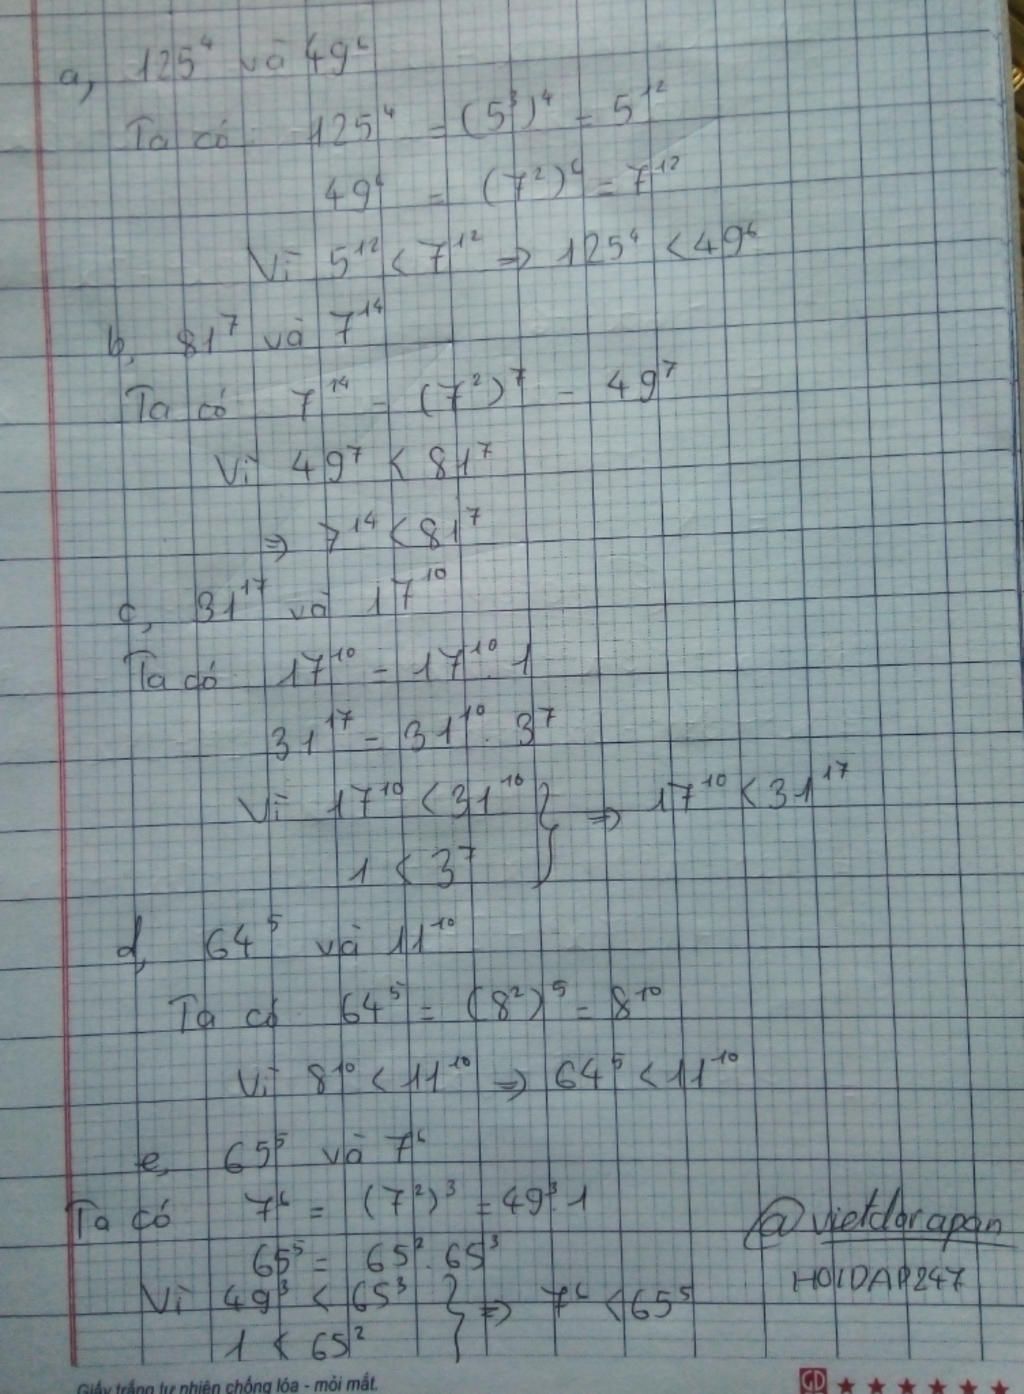 a, 125⁴ và 49⁶
Ta có: 125⁴ = (5³)⁴ = 5¹²
49⁶ = (7²)⁶ = 7¹²
Vì 5¹² < 7¹² ⇒ 125⁴ < 49⁶
b, 81⁷ và 7¹⁴
Ta có 7¹⁴ = (7²)⁷ = 49⁷
Vì 49⁷ < 81⁷
⇒ 7¹⁴ < 81⁷
c, 31¹⁷ và 17¹⁰
Ta có 17¹⁰ = 17¹⁰.1
31¹⁷ = 31¹⁰.3⁷
Vì 17¹⁰ < 31¹⁰ } ⇒ 17¹⁰ < 31¹⁷
1 < 3⁷
d, 64⁵ và 11¹⁰
Ta có 64⁵ = (8²)⁵ = 8¹⁰
Vì 8¹⁰ < 11¹⁰ ⇒ 64⁵ < 11¹⁰
e, 65⁵ và 7⁶
Ta có 7⁶ = (7²)³ = 49³.1
65⁵ = 65².65³
Vì 49³ < 65³ } ⇒ 7⁶ < 65⁵
1 < 65²
@vietdorapan
HOIDAP247
Giấy trắng tự nhiên chống lóa - mỏi mắt.
GD ★ ★ ★ ★ ★ ★